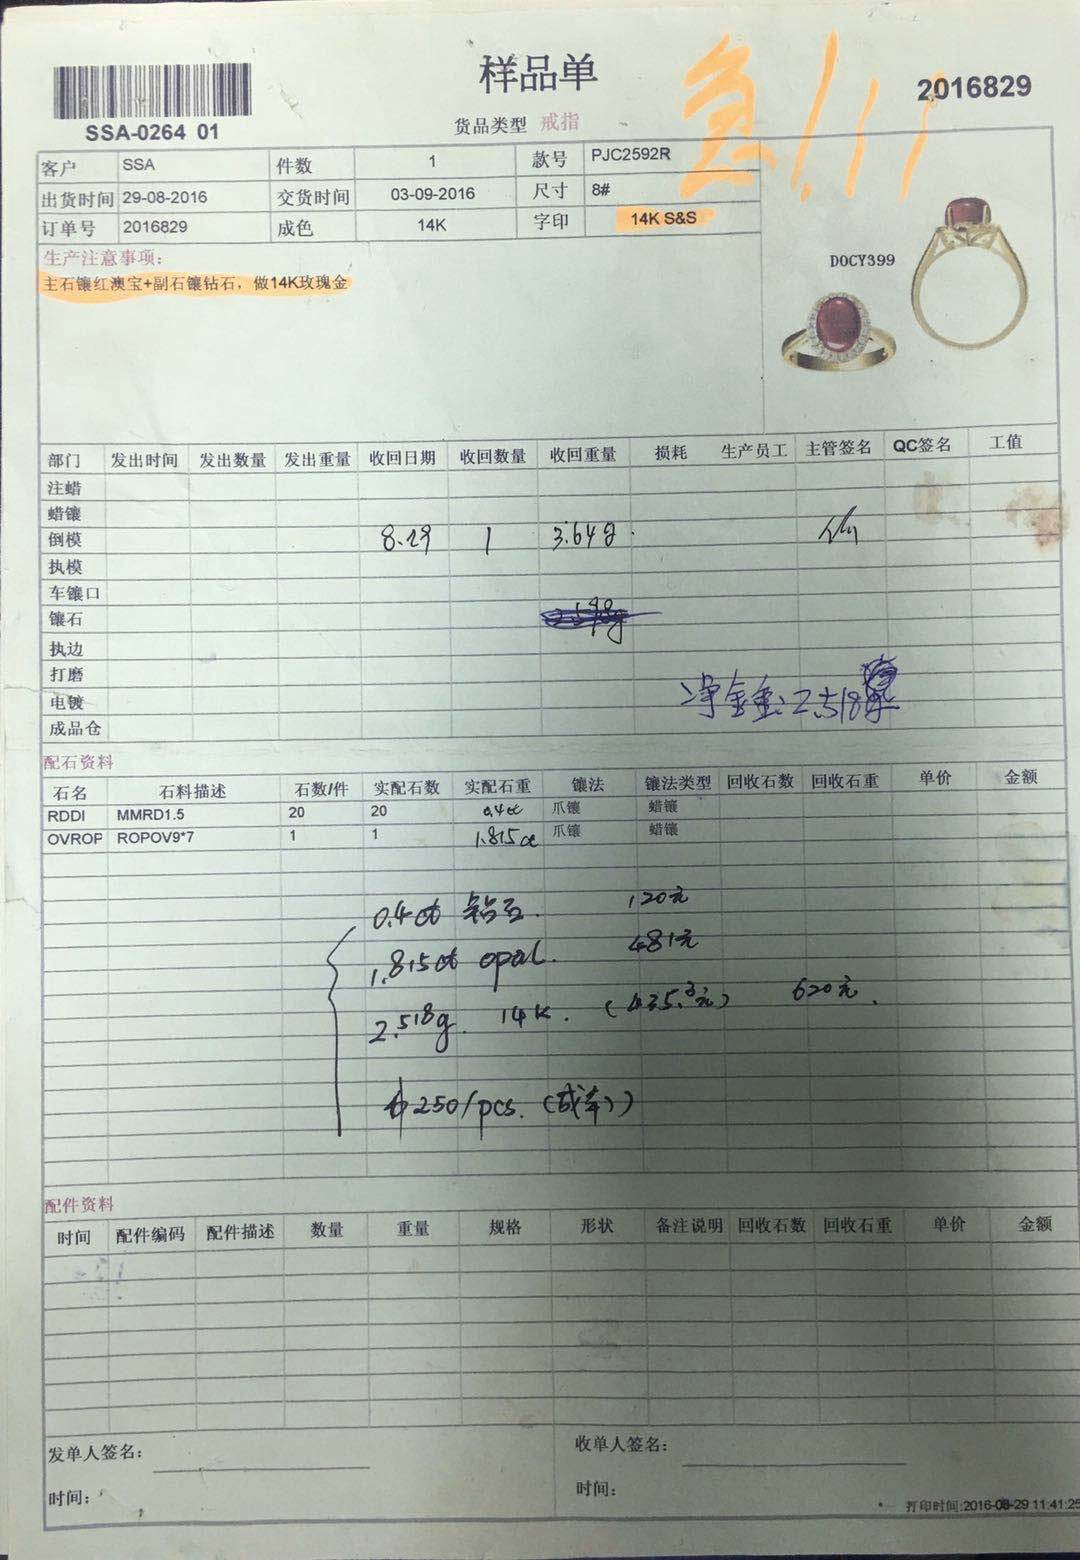 样品单
急!!!
2016829
SSA-0264 01
货品类型 戒指
客户 SSA 件数 1 款号 PJC2592R
出货时间 29-08-2016 交货时间 03-09-2016 尺寸 8#
订单号 2016829 成色 14K 字印 14K S&S
生产注意事项:
主石镶红澳宝+副石镶钻石，做14K玫瑰金
DOCY399
部门 发出时间 发出数量 发出重量 收回日期 收回数量 收回重量 损耗 生产员工 主管签名 QC签名 工值
注蜡
蜡镶
倒模 8.29 1 3.64g
执模
车镶口
镶石
执边
打磨
电镀 净金重:2.518
成品仓
配石资料
石名 石料描述 石数/件 实配石数 实配石重 镶法 镶法类型 回收石数 回收石重 单价 金额
RDDI MMRD1.5 20 20 0.4ct 爪镶 蜡镶
OVROP ROPOV9*7 1 1 1.815ct 爪镶 蜡镶
0.4ct 钻石. 120元
1.815ct opal. 481元
2.518g. 14K. (435.3元) 620元.
$250/pcs. (成本)
配件资料
时间 配件编码 配件描述 数量 重量 规格 形状 备注说明 回收石数 回收石重 单价 金额
发单人签名: 收单人签名:
时间: 时间:
打印时间:2016-08-29 11:41:25